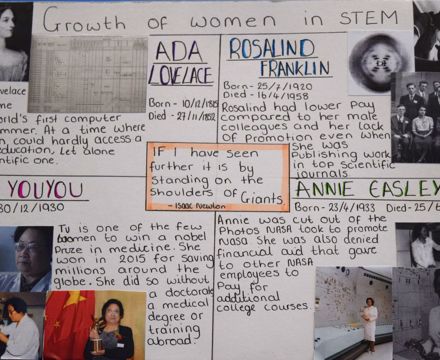 Growth of women in STEM
ADA
LOVELACE
Born - 10/12/1815
Died - 27/11/1852
ovelace
me
rld's first computer
mmer. At a time where
n could hardly access a
education, let alone
ntific one.
ROSALIND
FRANKLIN
Born - 25/7/1920
Died - 16/4/1958
Rosalind had lower pay
compared to her male
colleagues and her lack
of promotion even when
she was
Publishing work
in top scientific
journals
IF I have seen
further it is by
standing on the
shoulders of Giants.
- Isaac Newton
YOUYOU
30/12/1930
Tu is one of the few
women to win a nobel
Prize in medicine. She
won in 2015 for saving
millions around the
globe. She did so without
a doctorate
a medical
degree or
training
abroad.
ANNIE EASLEY
Born - 23/4/1933 Died - 25/6
Annie was cut out of the
Photos NASA took to promote
NASA. She was also denied
financial aid that gave
to other NASA
employees to
Pay for
additional
college courses.